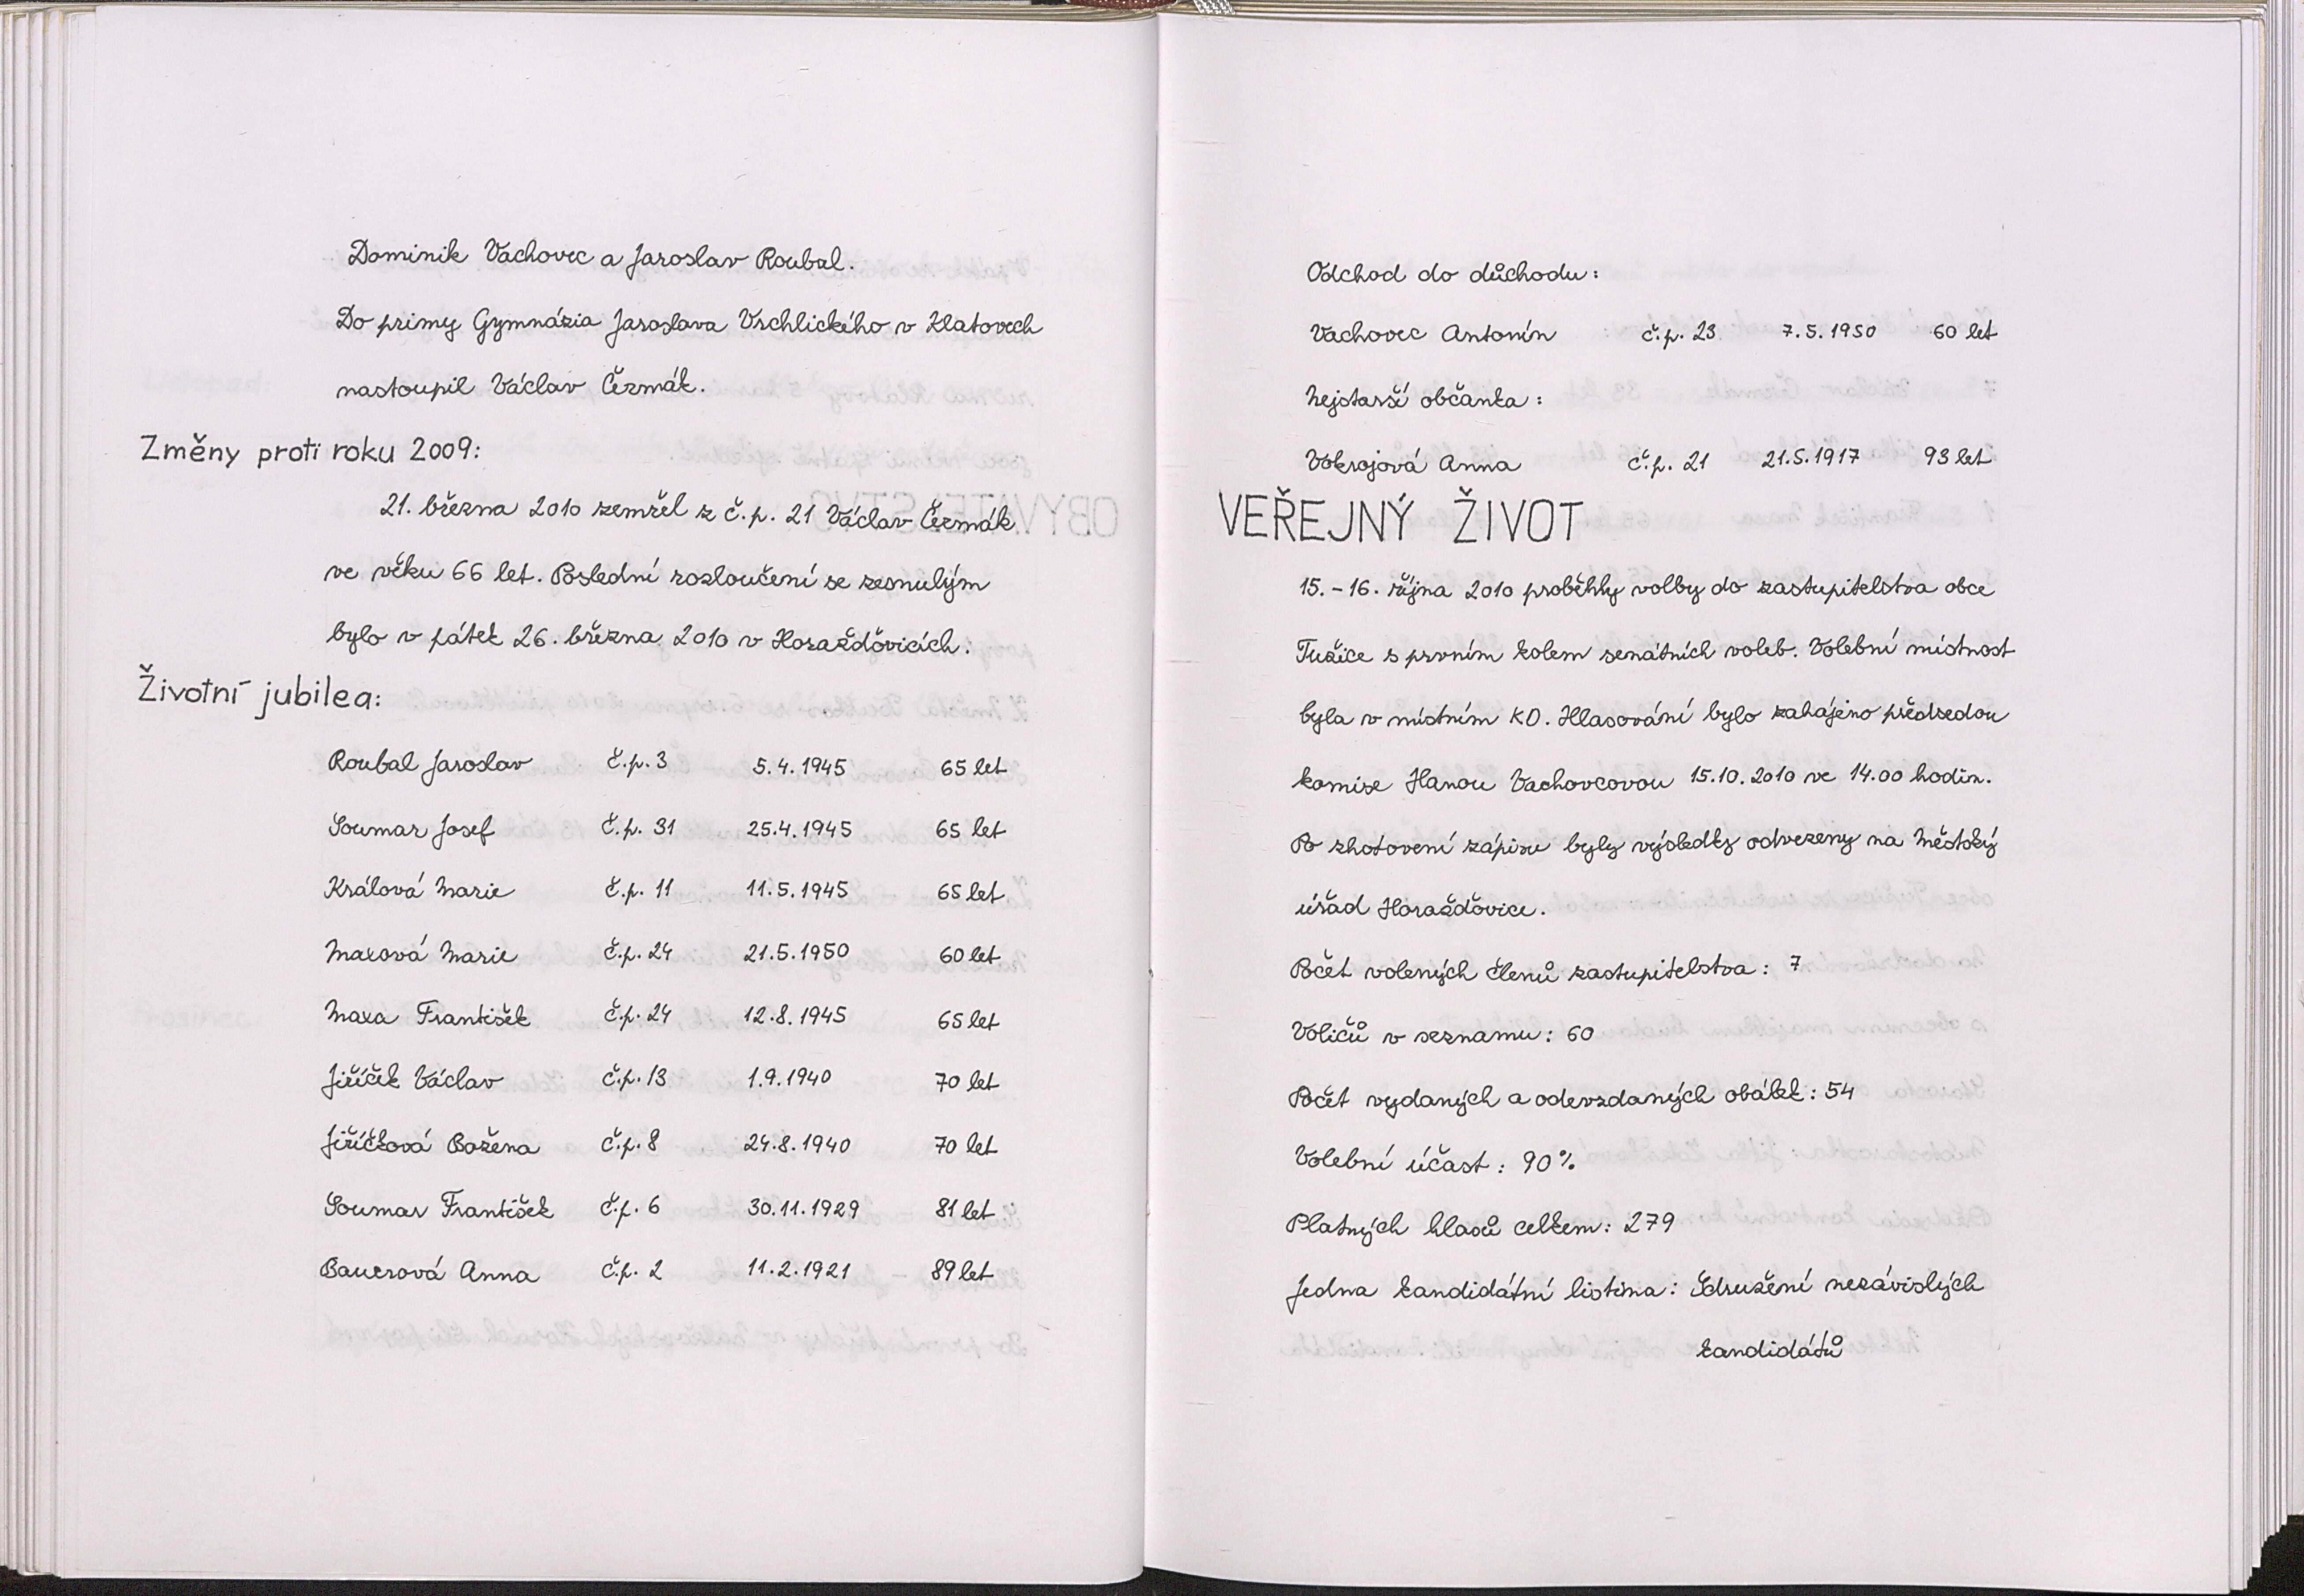 Dominik Vachovec a Jaroslav Roubal.
Do primy Gymnázia Jaroslava Vrchlického v Klatovech
nastoupil Václav Čermák.
Změny proti roku 2009:
21. března 2010 zemřel z č.p. 21 Václav Čermák
ve věku 66 let. Poslední rozloučení se zesnulým
bylo v pátek 26. března 2010 v Horažďovicích.
Životní jubilea:
Roubal Jaroslav č.p. 3 5.4.1945 65 let
Soumar Josef č.p. 31 25.4.1945 65 let
Králová Marie č.p. 11 11.5.1945 65 let
Maxová Marie č.p. 24 21.5.1950 60 let
Maxa František č.p. 24 12.8.1945 65 let
Jiříček Václav č.p. 13 1.9.1940 70 let
Jiříčková Božena č.p. 8 24.8.1940 70 let
Soumar František č.p. 6 30.11.1929 81 let
Bauerová Anna č.p. 2 11.2.1921 89 let
Odchod do důchodu:
Vachovec Antonín č.p. 23 7.5.1950 60 let
Nejstarší občanka:
Vokrojová Anna č.p. 21 21.5.1917 93 let
VEŘEJNÝ ŽIVOT
15.-16. října 2010 proběhly volby do zastupitelstva obce
Tužice s prvním kolem senátních voleb. Volební místnost
byla v místním KD. Hlasování bylo zahájeno předsedou
komise Hanou Vachovcovou 15.10.2010 ve 14.00 hodin.
Po zhotovení zápisu byly výsledky odvezeny na Městský
úřad Horažďovice.
Počet volených členů zastupitelstva: 7
Voličů v seznamu: 60
Počet vydaných a odevzdaných obálek: 54
Volební účast: 90%
Platných hlasů celkem: 279
Jedna kandidátní listina: Sdružení nezávislých
kandidátů